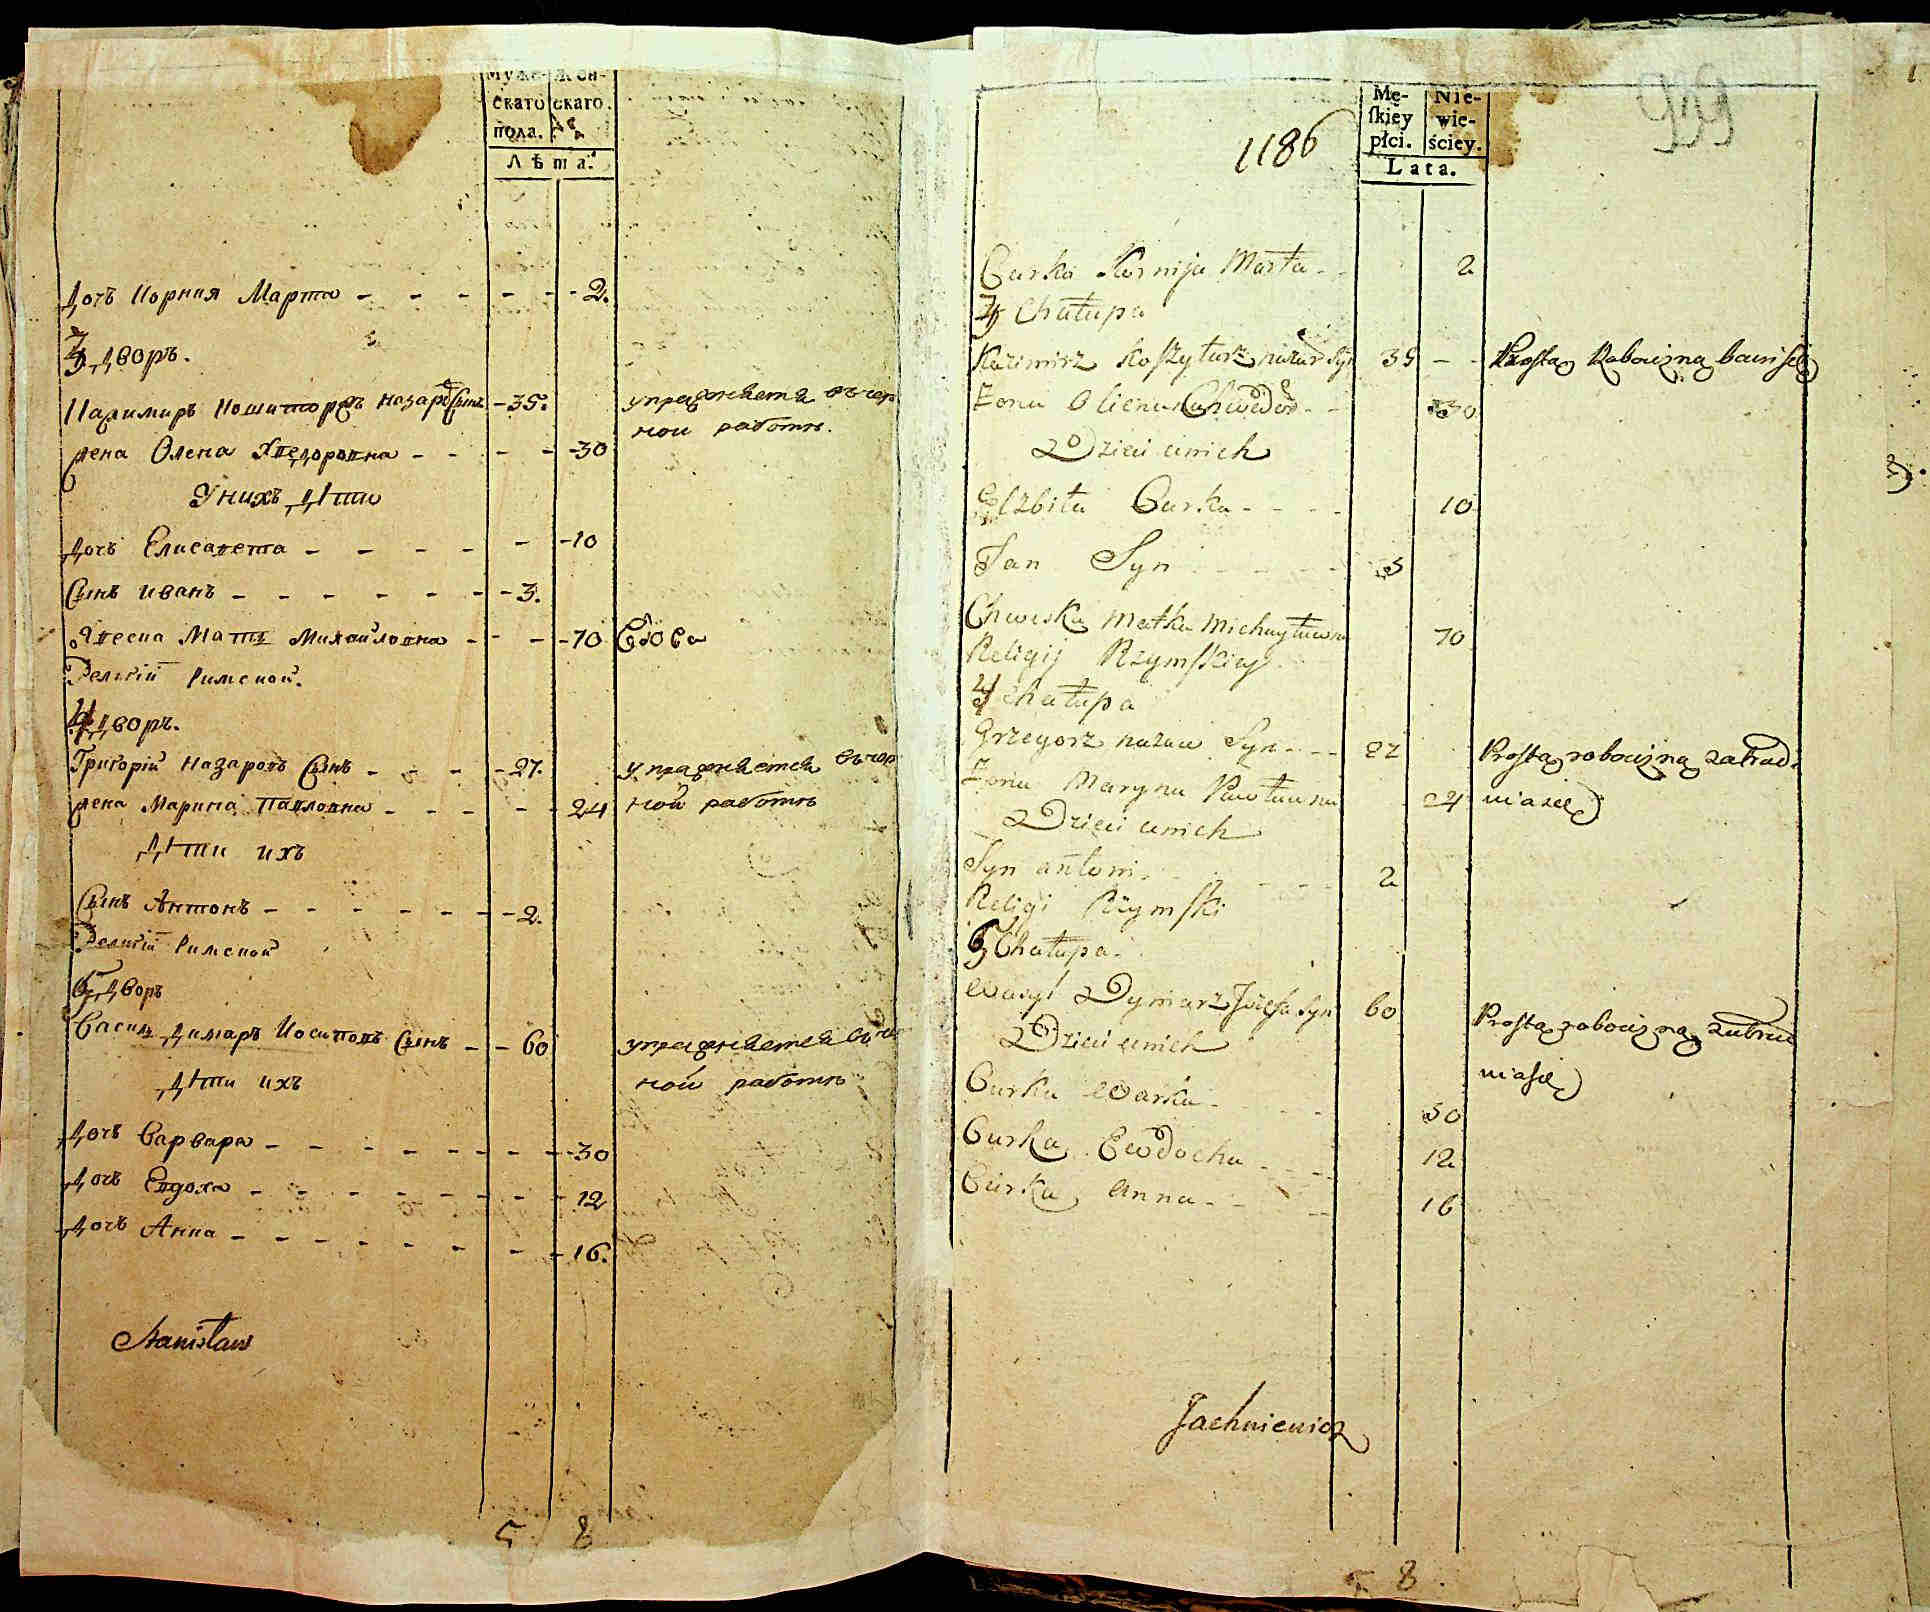 Муже- Жен-
скаго скаго.
пола.
Лѣта.
Дочь Корния Марта - - - - - - 2.
3 Дворъ.
Казимиръ Кошиторъ Назаръ Сынъ - 35. упражняется въ чер
жена Олена Хведоровна - - - - - 30 ной работѣ.
У нихъ Дѣти
Дочъ Елисавета - - - - - - 10
Сынъ Иванъ - - - - - - - 3.
Хвеска Мать Михайловна - - - - 70 Вдова
Религiи Римской.
4 Дворъ.
Григорiй Назаровъ Сынъ - - - - 27. упражняется въ чер
жена Марина Павловна - - - - - 24 ной работѣ
Дѣти ихъ
Сынъ Антонъ - - - - - - - 2.
Религiи Римской
5 Дворъ
Василь Димаръ Иосиповъ Сынъ - - 60 упражняется въ чер
Дѣти ихъ ной работѣ
Дочъ Варвара - - - - - - - - 30
Дочъ Евдоха - - - - - - - - 12
Дочъ Анна - - - - - - - - 16.
Stanisław
5 8
939
1186
Mę- Nie-
ſkiey wie-
płci. ściey.
Lata.
Curka Kornija Marta - - 2
3 Chałupa
Kazimirz Koszyturz nazar Syn 35 - - Prostą Robocizną bawi się
Żona Oliena Chwedor - - 30
Dzieci unich
Elzbita Curka - - - - 10
Jan Syn - - - - 3
Chweska Matka Michayłuwna 70
Religij Rzymſkiey
4 Chałupa
Grzegorz nazar Syn - - - 27 Prostą robocizną zatrud
Żona Maryna Pawłuwna 24 nia się
Dzieci unich
Syn antoni - - - - - 2
Religi Rzymſki
5 Chałupa.
Wasyl Dymarz Jozefa Syn 60 Prostą robocizną zatrud
Dzieci unich nia się
Curka Warka - - - - 30
Curka Ewdocha - - - - 12
Curka anna - - - - 16
Jachniewicz
5 8